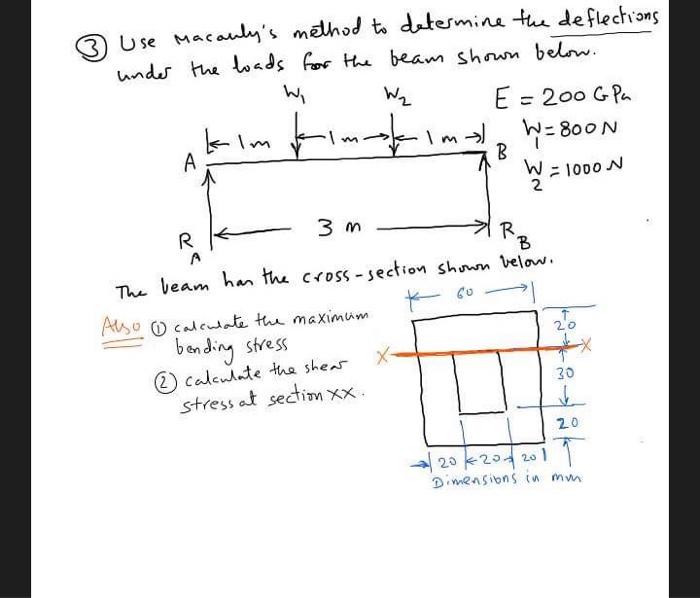 ③ Use Macauly's method to determine the deflections
under the loads for the beam shown below.
W1 W2 E = 200 GPa
1m 1m 1m W1 = 800 N
A B
W2 = 1000 N
3 m
RA RB
The beam has the cross-section shown below.
60
Also ① calculate the maximum
bending stress
② calculate the shear
stress at section xx.
20
X X
30
20
20 20 20
Dimensions in mm